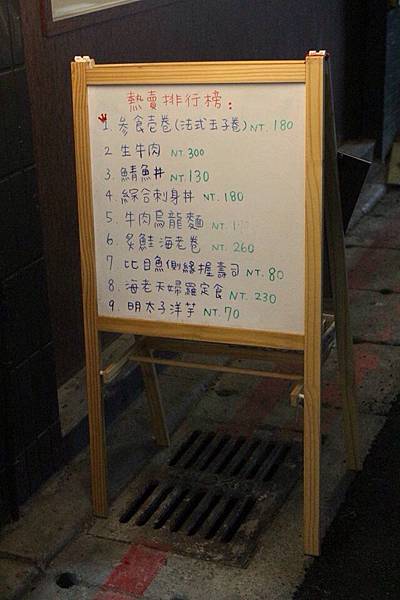 熱賣排行榜：
1 參食壱卷(法式玉子卷) NT. 180
2 生牛肉 NT. 300
3. 鯖魚丼 NT. 130
4. 綜合刺身丼 NT. 180
5. 牛肉烏龍麵 NT.
6. 炙鮭海老卷 NT. 260
7 比目魚側緣握壽司 NT. 80
8. 海老天婦羅定食 NT. 230
9. 明太子洋芋 NT. 70